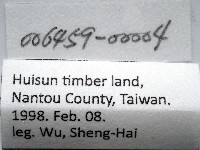 006459-00004
Huisun timber land,
Nantou County, Taiwan.
1998. Feb. 08.
leg. Wu, Sheng-Hai